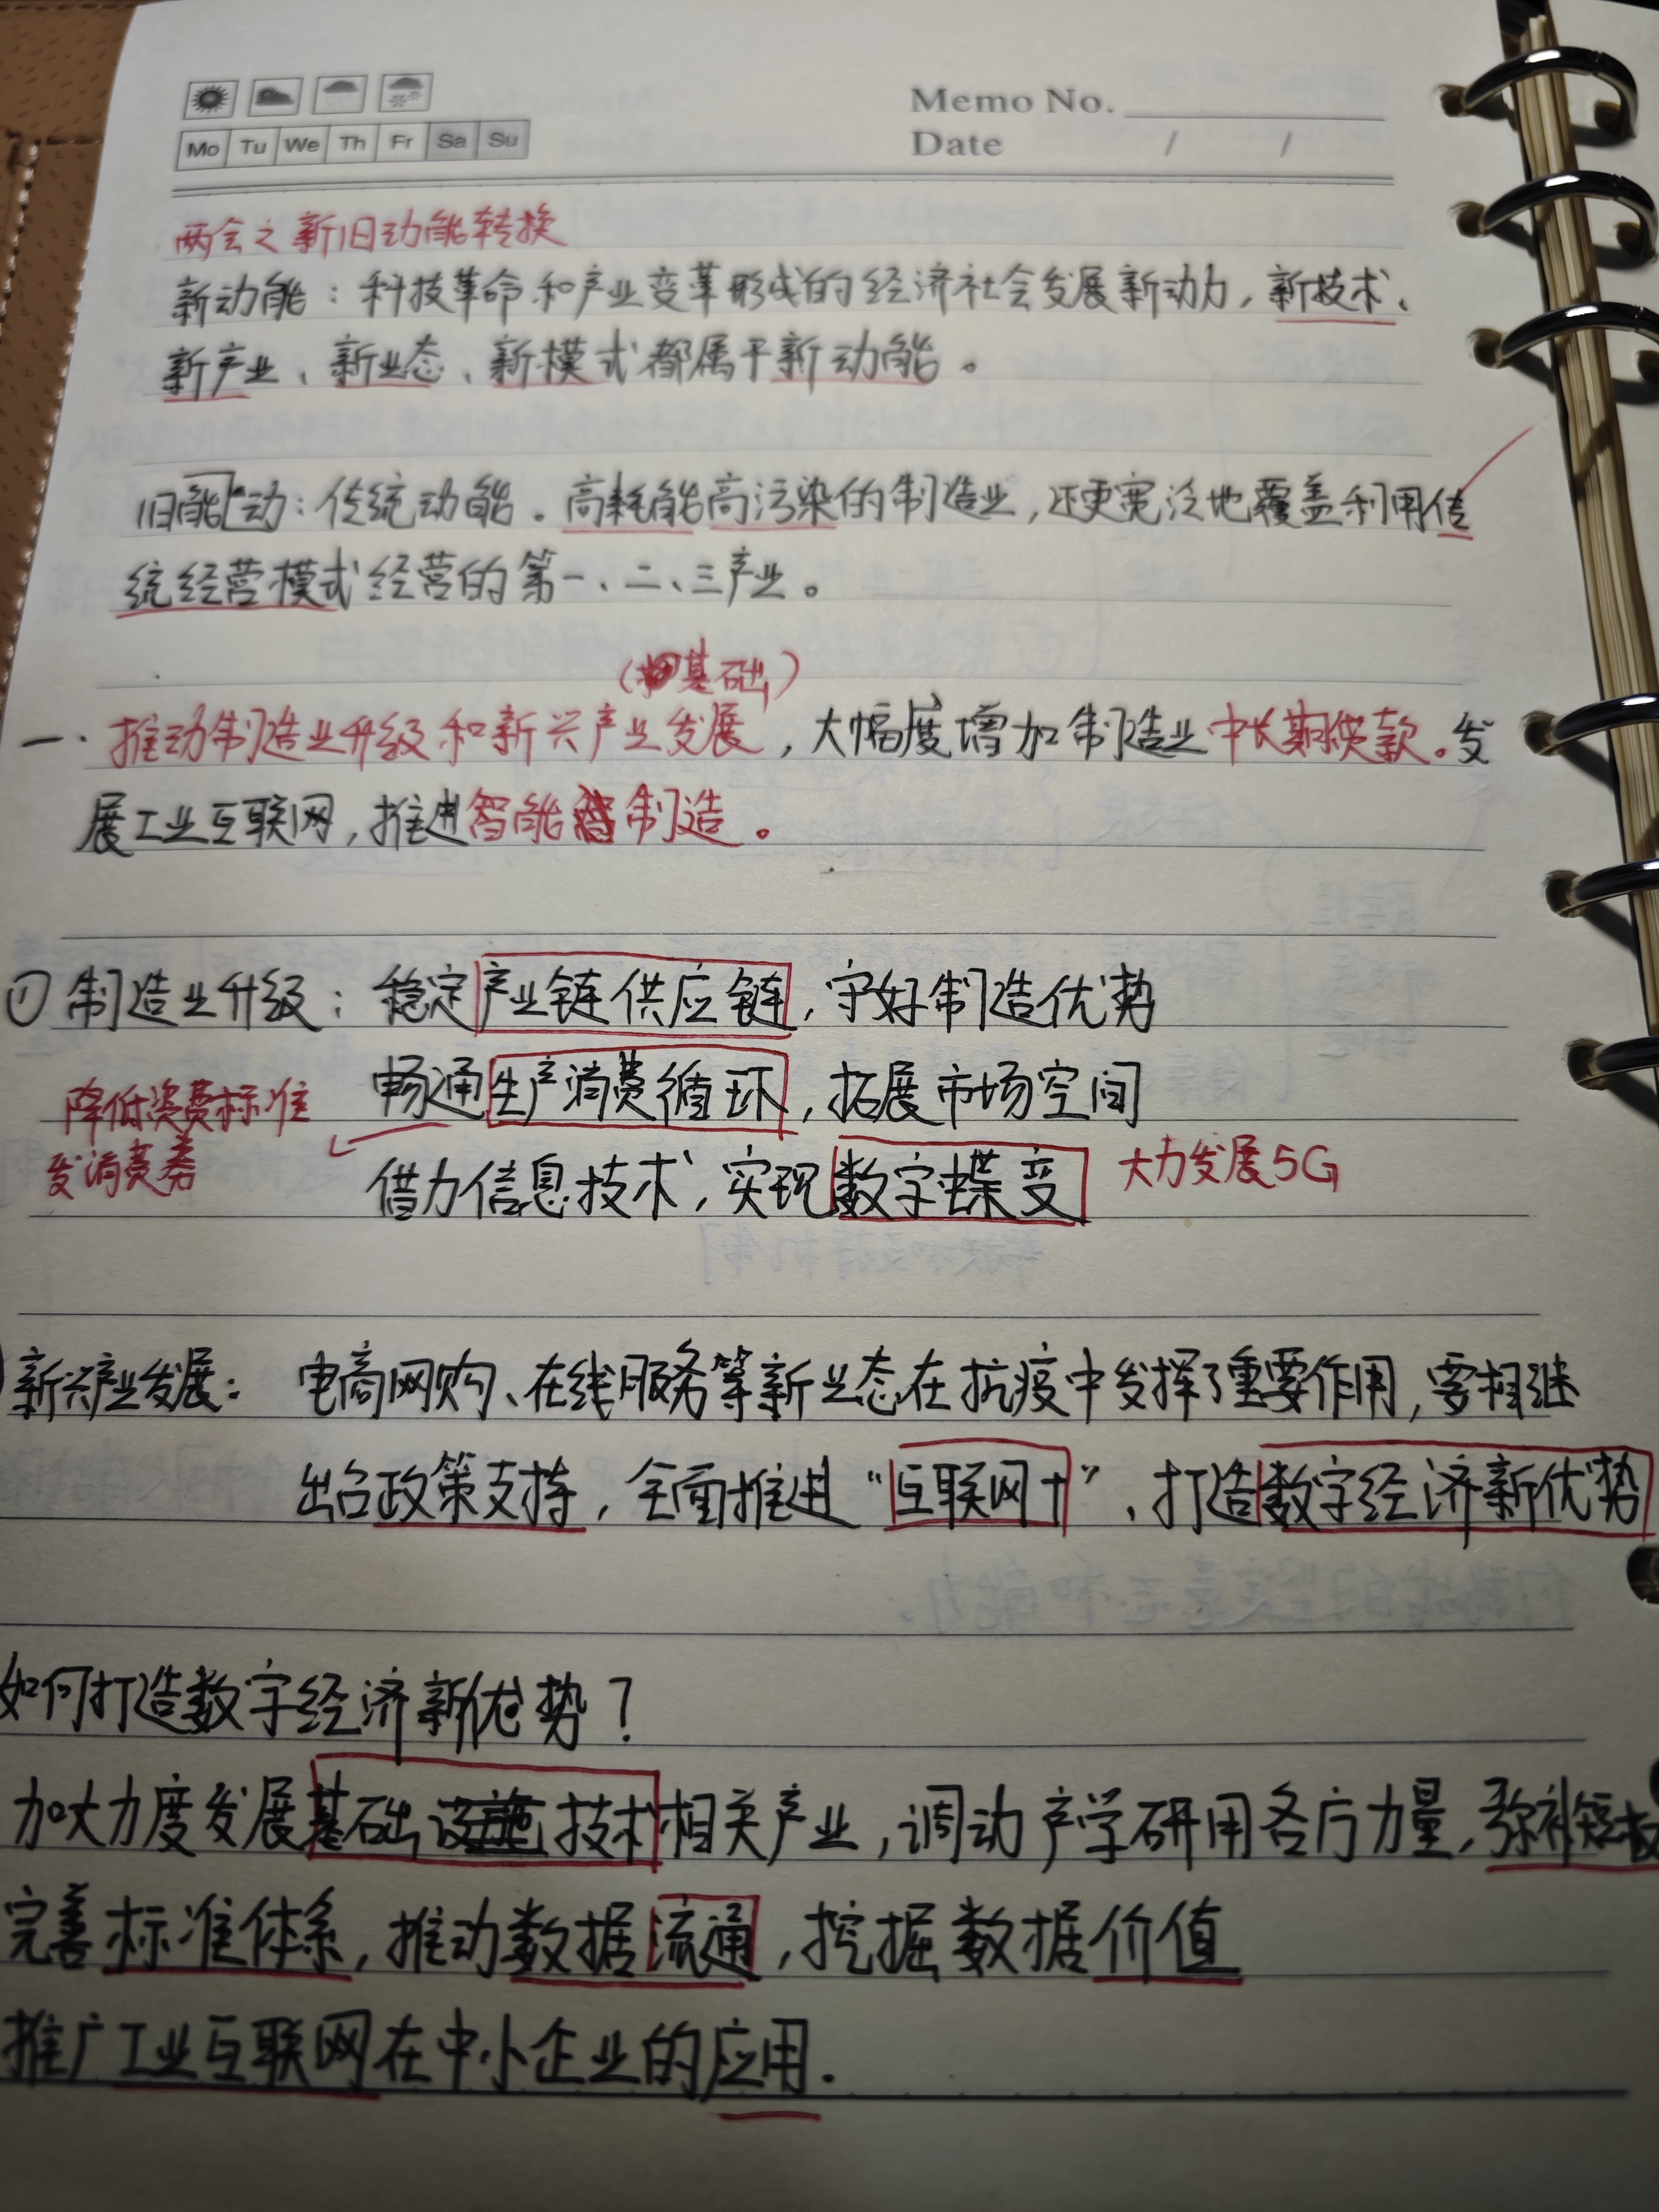 Memo No.
Mo Tu We Th Fr Sa Su
Date / /
两会之新旧动能转换
新动能：科技革命和产业变革形成的经济社会发展新动力，新技术、
新产业、新业态、新模式都属于新动能。
旧能动：传统动能。高耗能高污染的制造业，还更宽泛地覆盖利用传
统经营模式经营的第一、二、三产业。
（基础）
一.推动制造业升级和新兴产业发展，大幅度增加制造业中长期贷款。发
展工业互联网，推进智能制造。
①制造业升级：稳定产业链供应链，守好制造优势
畅通生产消费循环，拓展市场空间
降低资费标准
发消费券
借力信息技术，实现数字蝶变 大力发展5G
新兴产业发展：电商网购、在线服务等新业态在抗疫中发挥了重要作用，要相继
出台政策支持，全面推进“互联网+”，打造数字经济新优势
如何打造数字经济新优势？
加大力度发展基础设施技术相关产业，调动产学研用各方力量，弥补短板
完善标准体系，推动数据流通，挖掘数据价值
推广工业互联网在中小企业的应用.